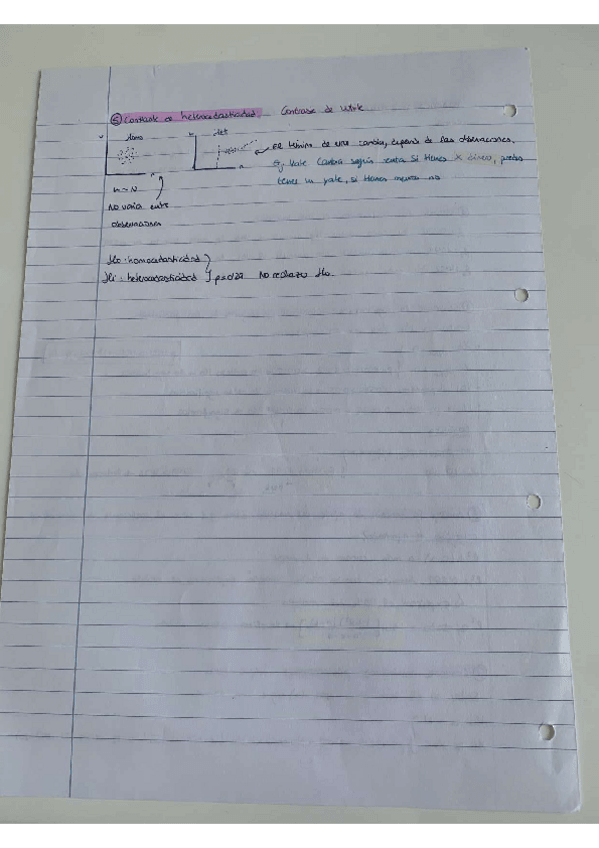 ⑤ Contraste de heterocedasticidad. Contraste de White
Homo Het
El término de error cambia, depende de las observaciones.
Ej Yate cambia según renta si tienes X dinero, puedes
tener un yate, si tienes menos no
u ~ N
No varía entre
observaciones
Ho: homocedasticidad
H1: heterocedasticidad No rechazo Ho.